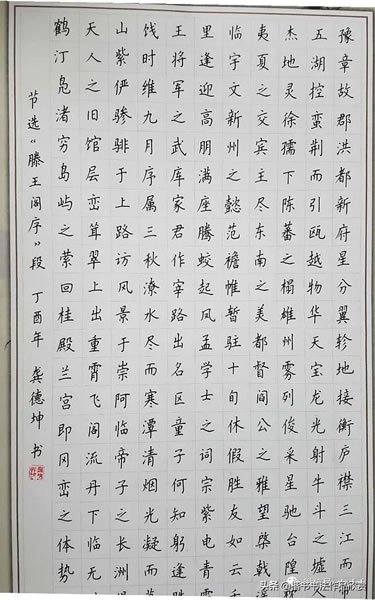 豫章故郡洪都新府星分翼轸地接衡庐襟三江而
五湖控蛮荆而引瓯越物华天宝龙光射牛斗之墟
杰地灵徐孺下陈蕃之榻雄州雾列俊采星驰台隍
夷夏之交宾主尽东南之美都督阎公之雅望棨戟
临宇文新州之懿范襜帷暂驻十旬休假胜友如云
里逢迎高朋满座腾蛟起凤孟学士之词宗紫电青
王将军之武库家君作宰路出名区童子何知躬逢
饯时维九月序属三秋潦水尽而寒潭清烟光凝而
山紫俨骖騑于上路访风景于崇阿临帝子之长洲
天人之旧馆层峦耸翠上出重霄飞阁流丹下临无
鹤汀凫渚穷岛屿之萦回桂殿兰宫即冈峦之体势
节选“滕王阁序”段 丁酉年 龚德坤 书
头条